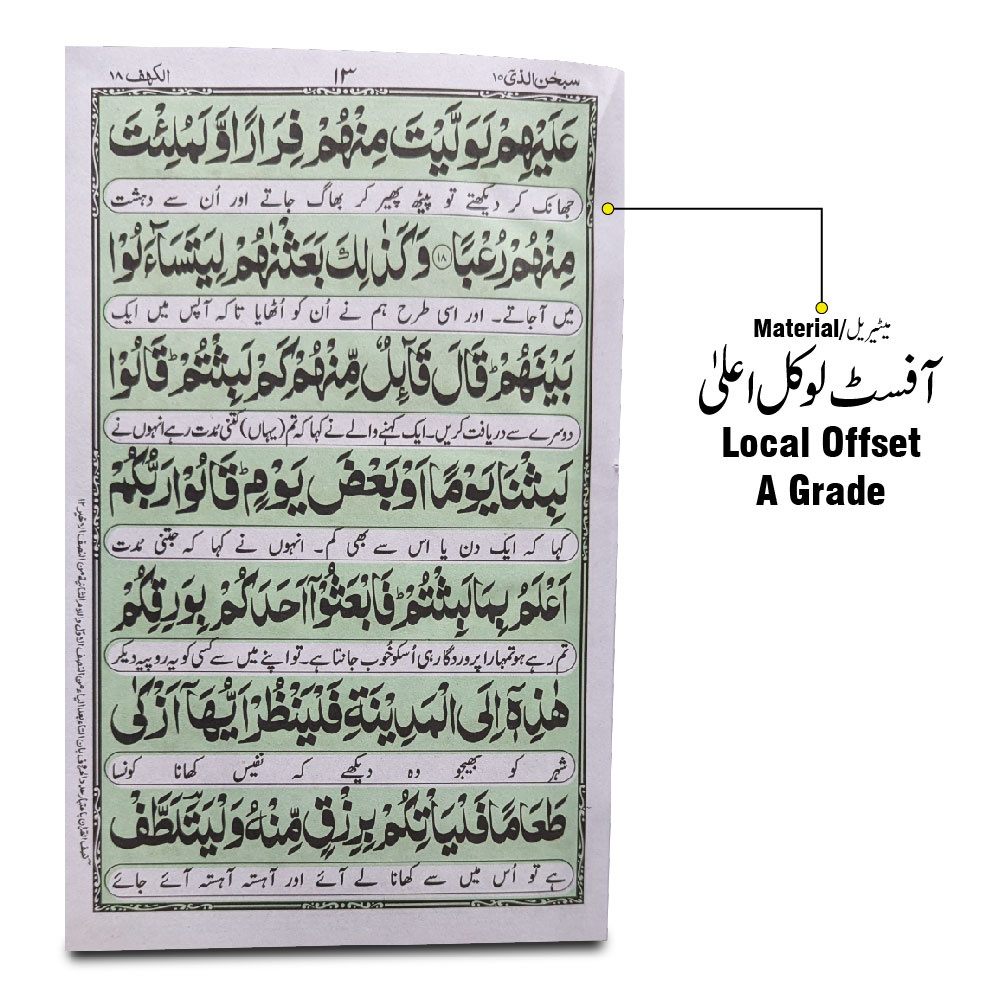 سبحٰن الذیٓ ۱۵
۱۳
الکھف ۱۸
عَلَيْهِمْ لَوَلَّيْتَ مِنْهُمْ فِرَارًا وَّلَمُلِئْتَ
جھانک کر دیکھتے تو پیٹھ پھیر کر بھاگ جاتے اور اُن سے دہشت
مِنْهُمْ رُعْبًا ۱۸ وَكَذٰلِكَ بَعَثْنٰهُمْ لِيَتَسَآءَلُوْا
میں آجاتے۔ اور اسی طرح ہم نے اُن کو اُٹھایا تاکہ آپس میں ایک
بَيْنَهُمْ ؕ قَالَ قَآئِلٌ مِّنْهُمْ كَمْ لَبِثْتُمْ ؕ قَالُوْا
دوسرے سے دریافت کریں۔ ایک کہنے والے نے کہا کہ تم (یہاں) کتنی مُدت رہے انہوں نے
لَبِثْنَا يَوْمًا اَوْ بَعْضَ يَوْمٍ ؕ قَالُوْا رَبُّكُمْ
کہا کہ ایک دن یا اس سے بھی کم۔ انہوں نے کہا کہ جتنی مُدت
اَعْلَمُ بِمَا لَبِثْتُمْ ؕ فَابْعَثُوْۤا اَحَدَكُمْ بِوَرِقِكُمْ
تم رہے ہو تمہارا پروردگار ہی اُسکو خُوب جانتا ہے۔ تو اپنے میں سے کسی کو یہ روپیہ دیکر
هٰذِهٖۤ اِلَى الْمَدِيْنَةِ فَلْيَنْظُرْ اَيُّهَاۤ اَزْكٰى
شہر کو بھیجو وہ دیکھے کہ نفیس کھانا کونسا
طَعَامًا فَلْيَاْتِكُمْ بِرِزْقٍ مِّنْهُ وَلْيَتَلَطَّفْ
ہے تو اُس میں سے کھانا لے آئے اور آہستہ آہستہ آئے جائے
Material/میٹیریل
آفسٹ لوکل اعلیٰ
Local Offset
A Grade